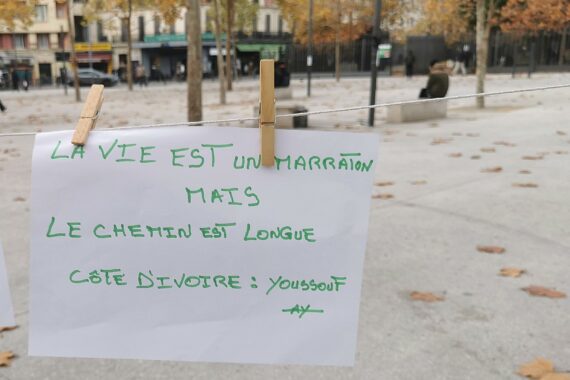 LA VIE EST UN MARRATON
MAIS
LE CHEMIN EST LONGUE
CÔTE D'IVOIRE : YOUSSOUF
AY